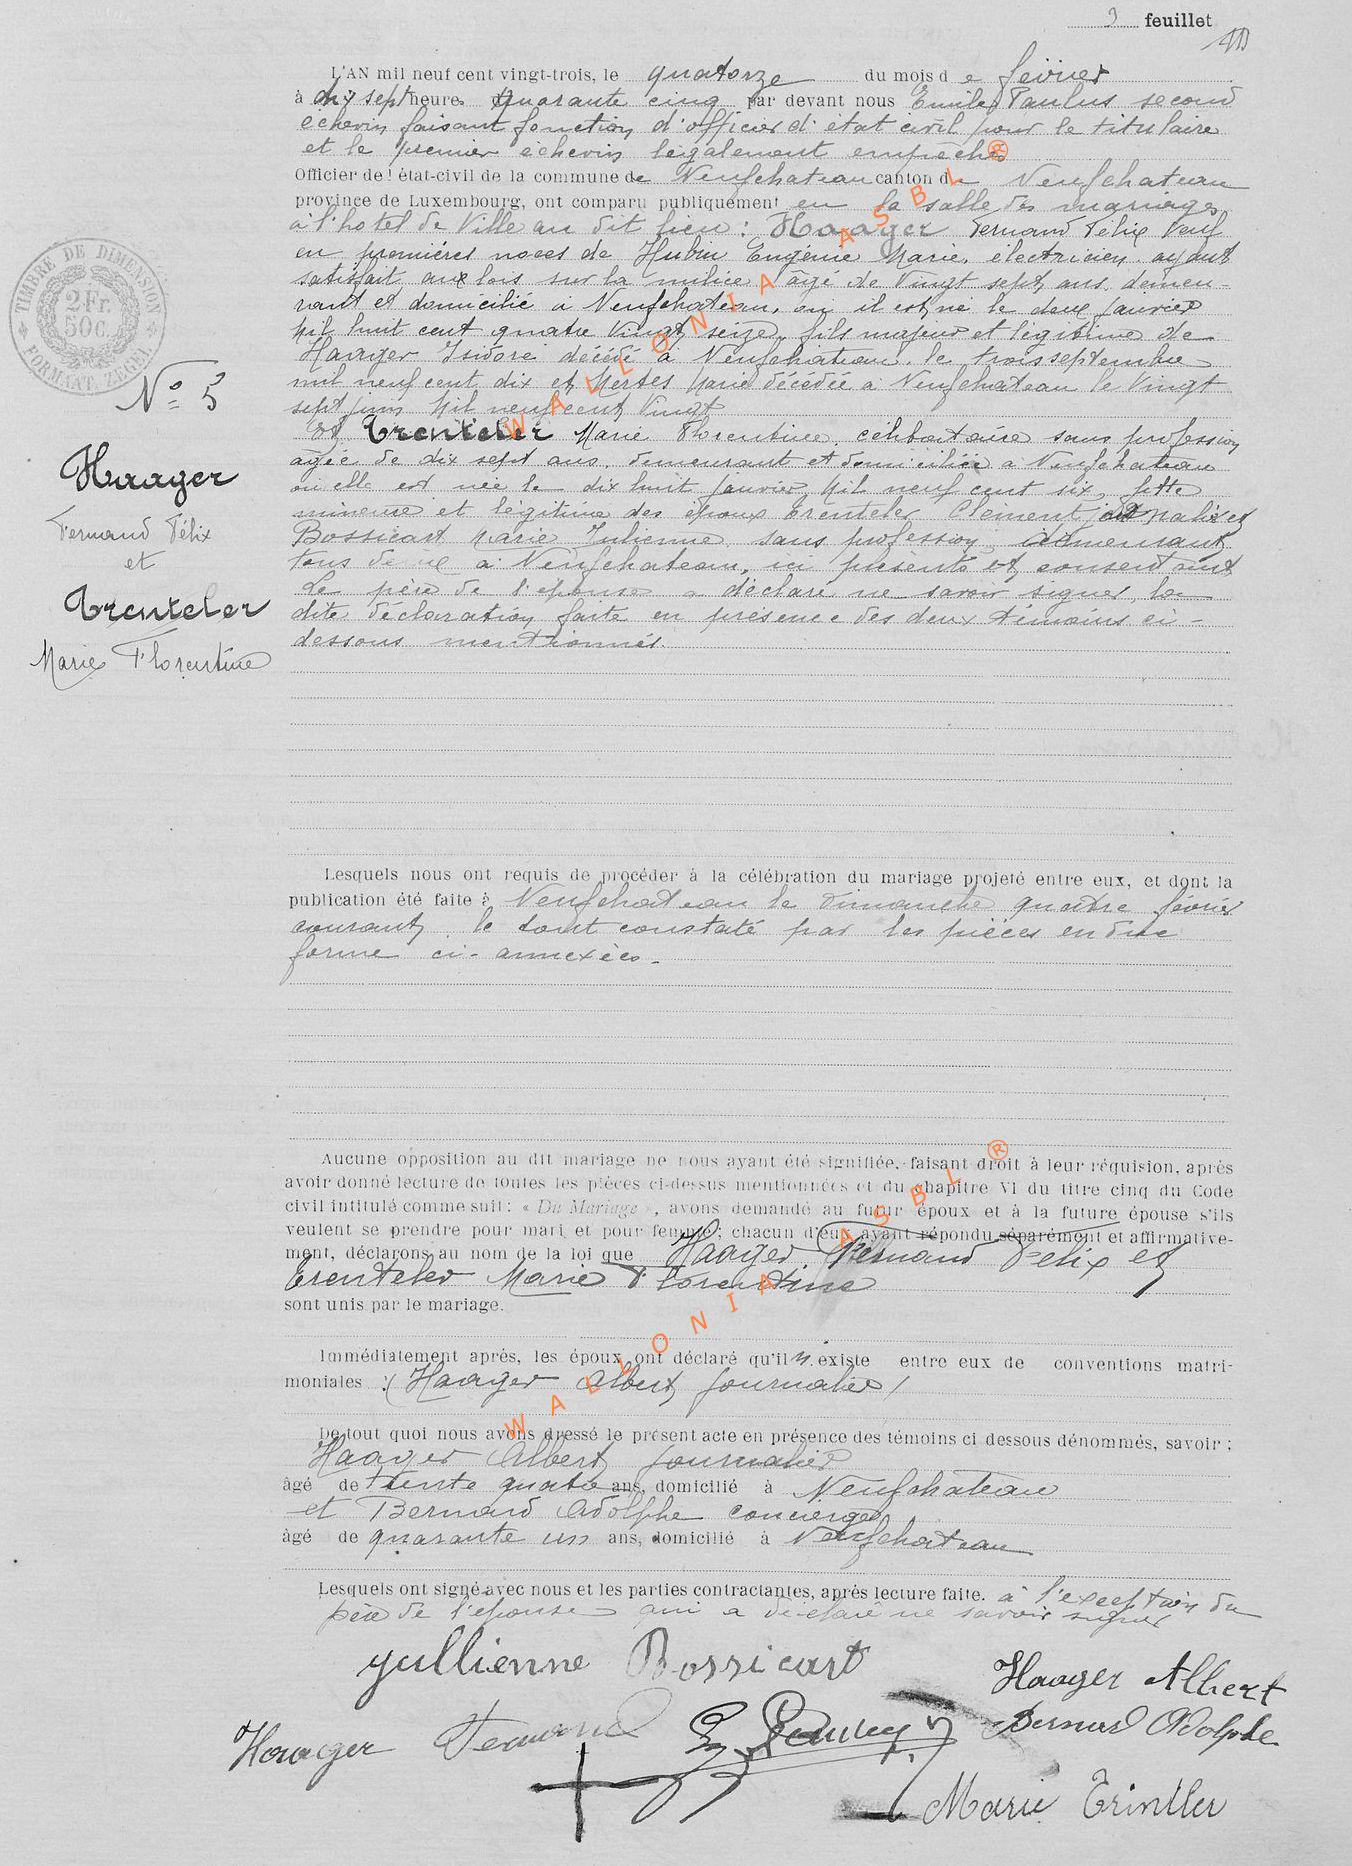 3 feuillet
L'AN mil neuf cent vingt-trois, le quatorze du mois d e février
à dix sept heures quarante cinq par devant nous Emile Paulus second
echevin faisant fonction d'officier d'état civil pour le titulaire
et le premier échevin légalement empêchés
Officier de l'état-civil de la commune de Neufchateau canton de Neufchateau
province de Luxembourg, ont comparu publiquement en la salle des mariages
à l'hotel de Ville au dit lieu : Haager Fernand Félix Veuf
en premières noces de Hubin Eugénie Marie, électricien ayant
satisfait aux lois sur la milice âgé de Vingt sept ans demeu-
rant et domicilié à Neufchateau, où il est né le deux janvier
Mil huit cent quatre Vingt seize, fils majeur et légitime de
Haager Isidore décédé à Neufchateau le trois septembre
mil neuf cent dix et Mertes Marie décédée à Neufchateau le Vingt
sept juin Mil neuf cent Vingt
Et Trenteler Marie Florentine, célibataire sans profession
agée de dix sept ans, demeurant et domiciliée à Neufchateau
où elle est née le dix huit janvier Mil neuf cent six, fille
mineure et légitime des époux Trenteler Clément journalier et
Bossicart Marie Julienne sans profession demeurant
tous deux à Neufchateau, ici présents et consentants
Le père de l'épouse a déclaré ne savoir signer, la
dite déclaration faite en présence des deux témoins ci-
dessous mentionnés.
TIMBRE DE DIMENSION
2 Fr.
50 c.
FORMAAT ZEGEL
N° 5
Haager
Fernand Félix
et
Trenteler
Marie Florentine
Lesquels nous ont requis de procéder à la célébration du mariage projeté entre eux, et dont la
publication été faite à Neufchateau le Dimanche quatre février
courant, le tout constaté par les pièces en due
forme ci-annexées.
Aucune opposition au dit mariage ne nous ayant été signifiée, faisant droit à leur réquision, après
avoir donné lecture de toutes les pièces ci-dessus mentionnées et du chapitre VI du titre cinq du Code
civil intitulé comme suit : « Du Mariage », avons demandé au futur époux et à la future épouse s'ils
veulent se prendre pour mari et pour femme ; chacun d'eux ayant répondu séparément et affirmative-
ment, déclarons au nom de la loi que Haager Fernand Félix et
Trenteler Marie Florentine
sont unis par le mariage.
Immédiatement après, les époux ont déclaré qu'il n'existe entre eux de conventions matri-
moniales : (Haager Albert journalier)
De tout quoi nous avons dressé le présent acte en présence des témoins ci dessous dénommés, savoir :
Haager Albert journalier
âgé de trente quatre ans, domicilié à Neufchateau
et Bernard Adolphe concierge
âgé de quarante un ans, domicilié à Neufchateau
Lesquels ont signé avec nous et les parties contractantes, après lecture faite. à l'exception du
père de l'épouse qui a déclaré ne savoir signer
Jullienne Bossicart
Haager Albert
Haager Fernand
Bernard Adolphe
Marie Trintler
WALLONIA ASBL ®
WALLONIA ASBL ®